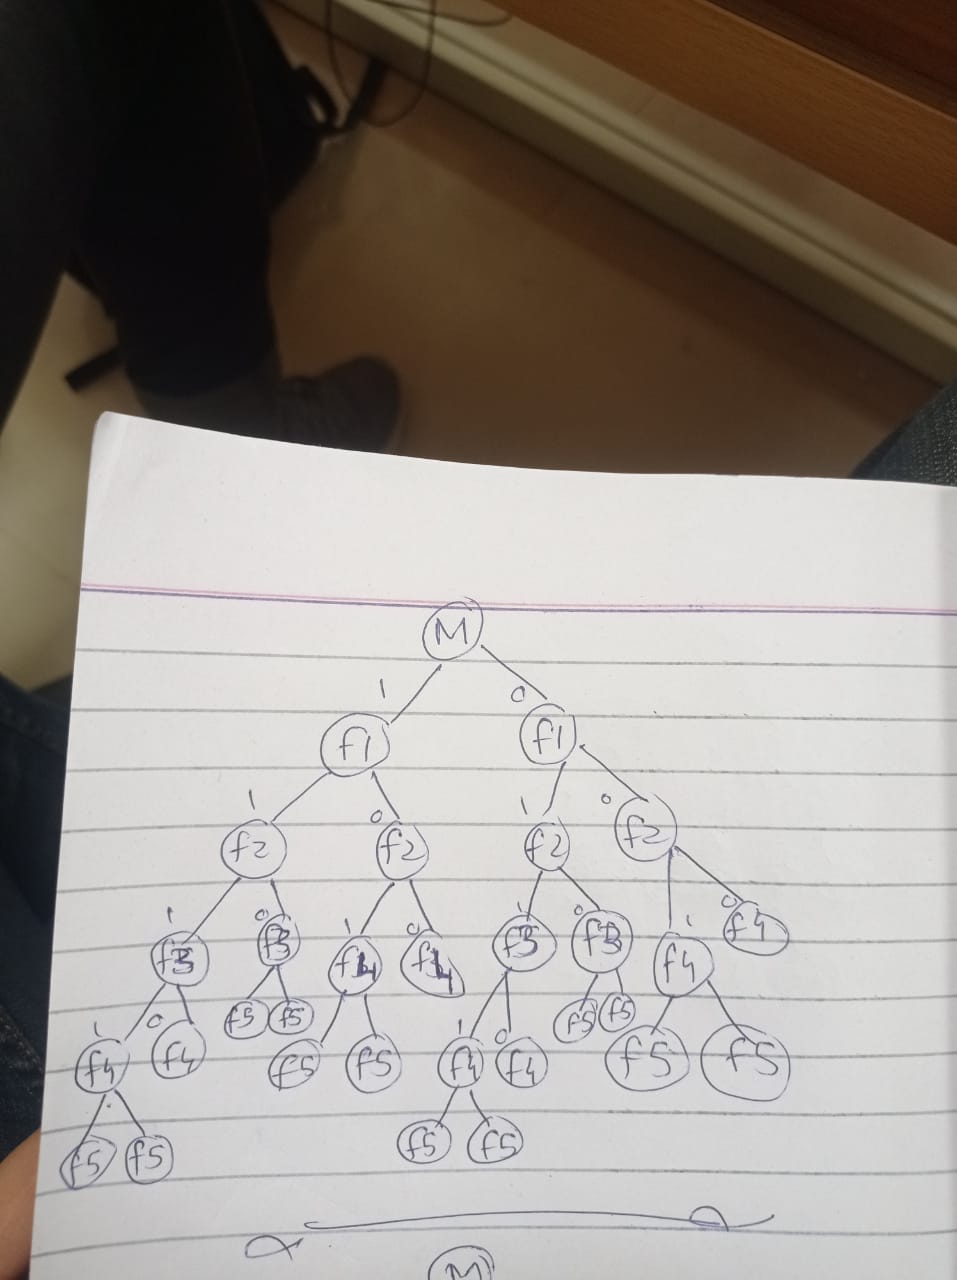 M
1 0
f1 f1
1 0 1 0
f2 f2 f2 f2
1 0 1 0 1 0 1 0
f3 f3 f4 f4 f3 f3 f4 f4
1 0 f5 f5 1 0 f5 f5
f4 f4 f5 f5 f4 f4 f5 f5
f5 f5 f5 f5
M